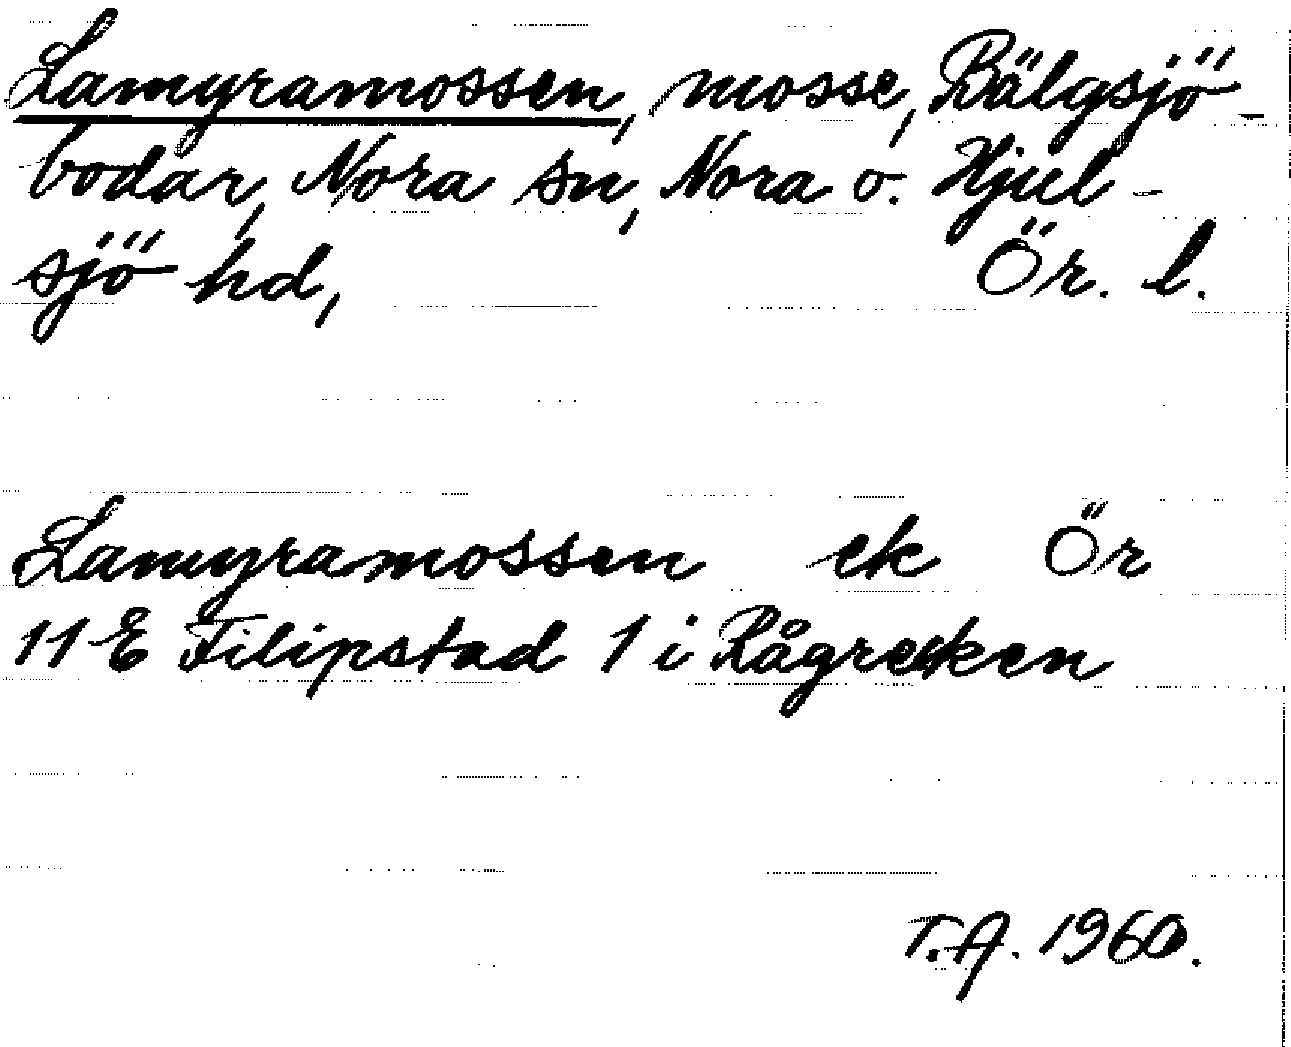 Lamyramossen, mosse, Bälgsjö-
bodar, Nora sn, Nora o. Hjul-
sjö hd, Ör. l.
Lamyramossen ek Ör
11 E Filipstad 1 i Rågrecken
T.A. 1960.